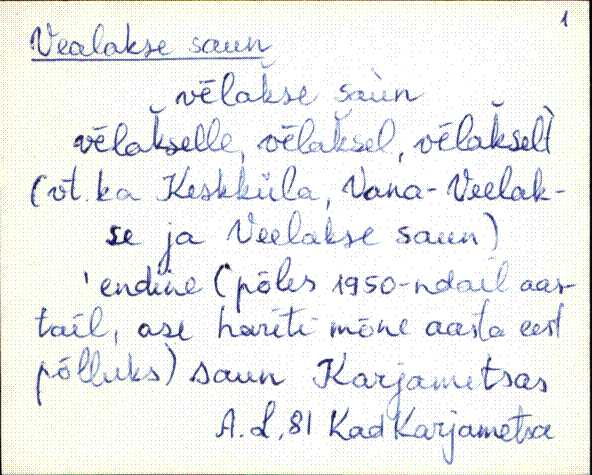 1
Vealakse saun
vēlaǩse saùn
vēlaǩselle, vēlaǩsel, vēlaǩselt
(vt. ka Keskküla, Vana-Veelak-
se ja Veelakse saun)
'endine (põles 1950-ndail aas-
tail, ase hariti mõne aasta eest
põlluks) saun Karjametsas
A. L, 81 Kad Karjametsa